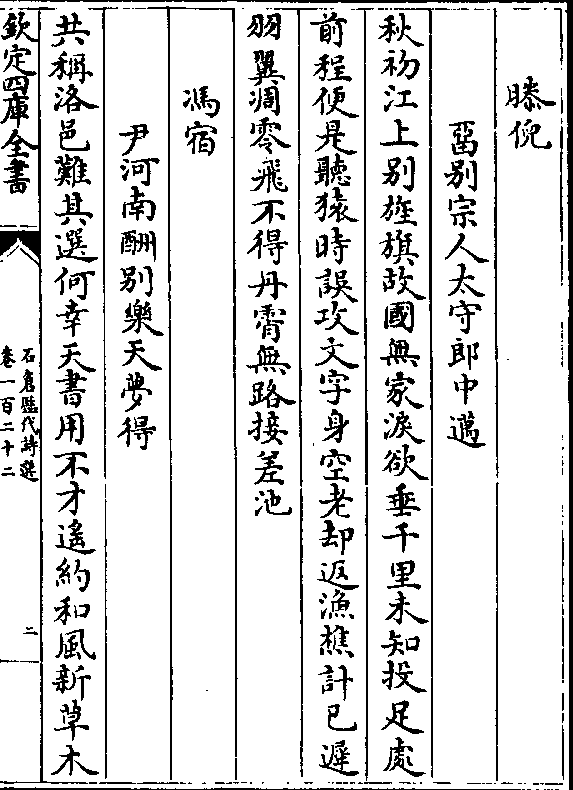 滕倪
畱别宗人太守郎中邁
秋初江上别旌旗故國無家淚欲垂千里未知投足處
前程便是聽猿時誤攻文字身空老却返漁樵計已遲
羽翼凋零飛不得丹霄無路接差池
馮宿
尹河南酬别樂天夢得
共稱洛邑難其選何幸天書用不才遥約和風新草木
欽定四庫全書
石倉歴代詩選
卷一百二十二
二